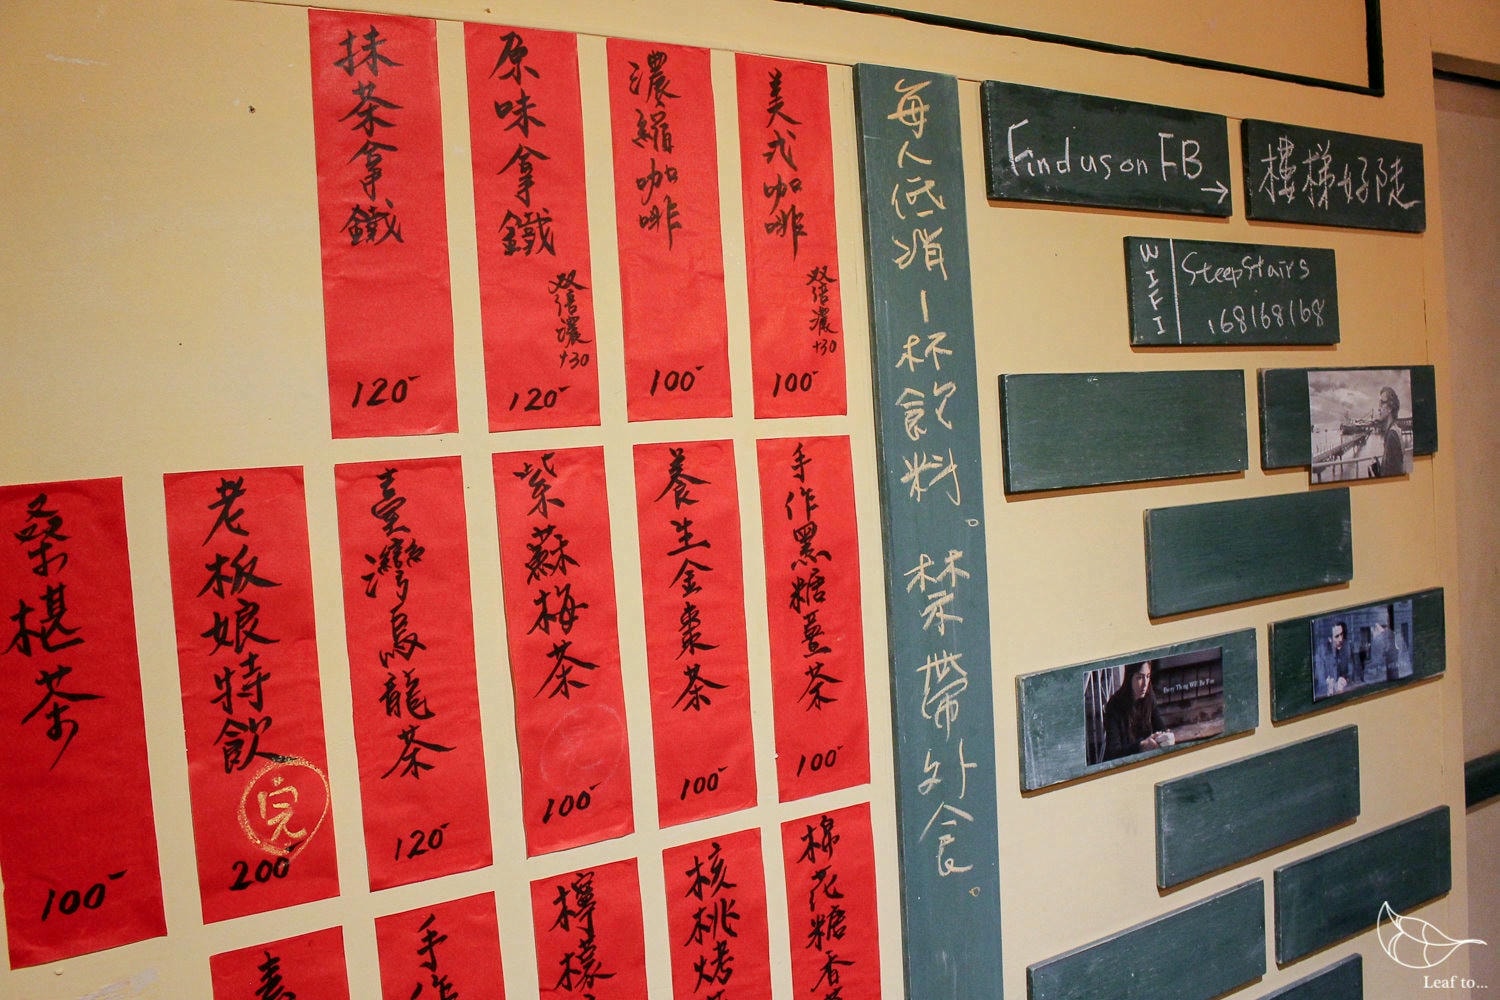 美式咖啡
双倍濃
+30
100
濃縮咖啡
100
原味拿鐵
双倍濃
+30
120
抹茶拿鐵
120
手作黑糖薑茶
100
養生金棗茶
100
紫蘇梅茶
100
臺灣烏龍茶
120
老板娘特飲
完
200
桑椹茶
100
棉花糖香
核桃烤
檸檬
手作
每人低消一杯飲料。禁帶外食。
Find us on FB →
樓梯好陡
WIFI
SteepStairs
168168168
Every Thing Will Be Fine
Leaf to...